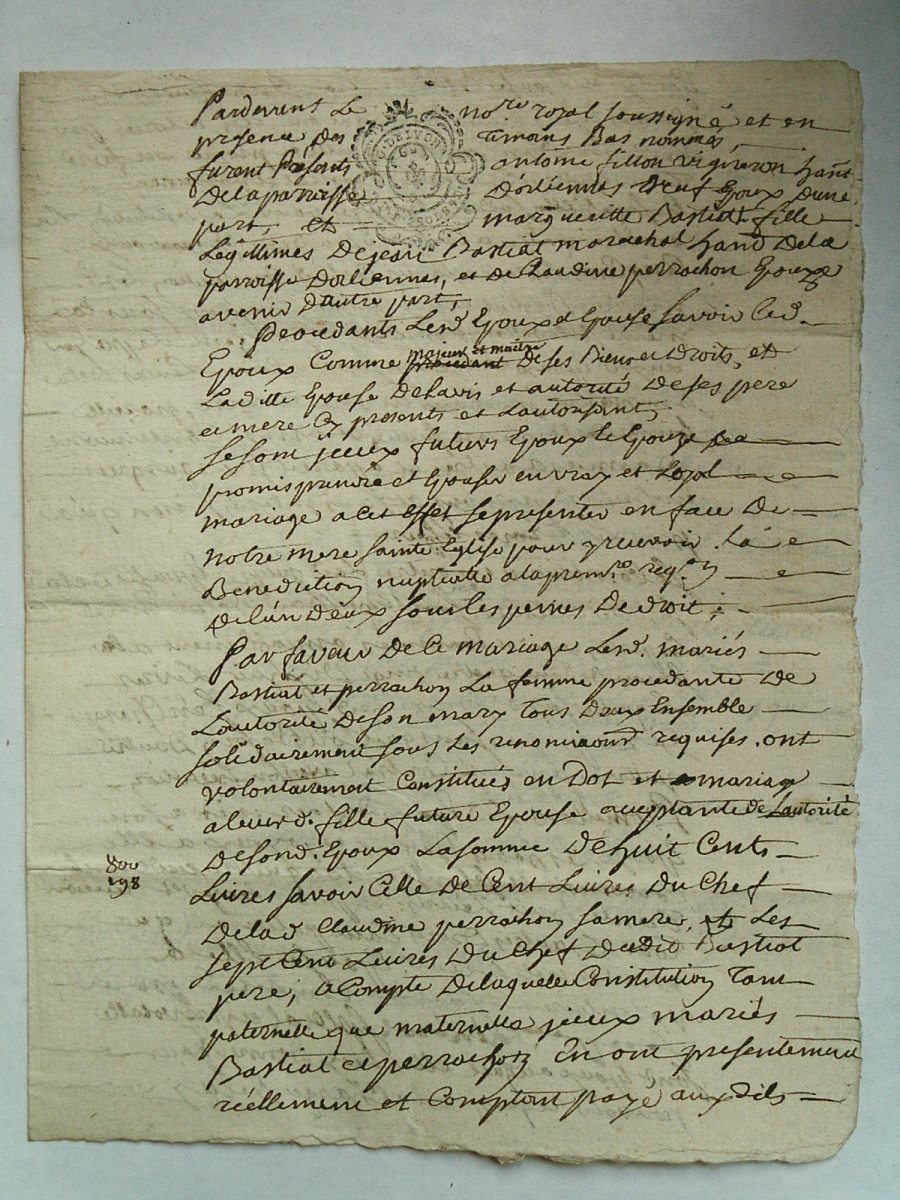 Pardevent Le no.re royal soussigné et en
presence des Temoins Bas nommés,
furent Présents antoine fillon vigneron hant
De la paroisse D'orliennes Epoux Dune
part, et margueritte Bastiat fille
Legittimes De jean Bastiat marechal hant De la
parroisse Dorliennes, et de Claudine perrachon Epouze
avenir D'autre part,
Procedants Lesd. Epoux et Epouse savoir Led.
Epoux Comme majeur et maitre De ses Biens et Droits, et
Laditte Epouse De Lavis et autorité De ses pere
et mere Cy presents et Lautorisant,
se sont jceux futurs Epoux et Epouze
promis prendre et Epouser en vray et Loyal
mariage a Cet Effet se presenter en face De
notre mere sainte Eglise pour y recevoir La
Benediction nuptialle a la prem.re req.on
De L'un D'eux sous les peines De droit;
Par faveur De Ce mariage Lesd. mariés
Bastiat et perrachon La femme procedante De
L'autorité De son mary Tous Deux Ensemble
solidairement sous Les renonciaons requises ont
volontairement Constitués en Dot et mariage
a leur d. fille future Epouse acceptante de Lautorité
De sond. Epoux La somme De huit Cents
800
198
Livres savoir Celle De Cent Livres Du Chef
De lad Claudine perrachon sa mere, et Les
sept Cent Livres Du Chef Dudit Bastiat
pere; a Compte De laquelle Constitution Tant
paternelle que maternelle jceux mariés
Bastiat et perrachon En ont presentement
réellement et Comptant payé aux dits